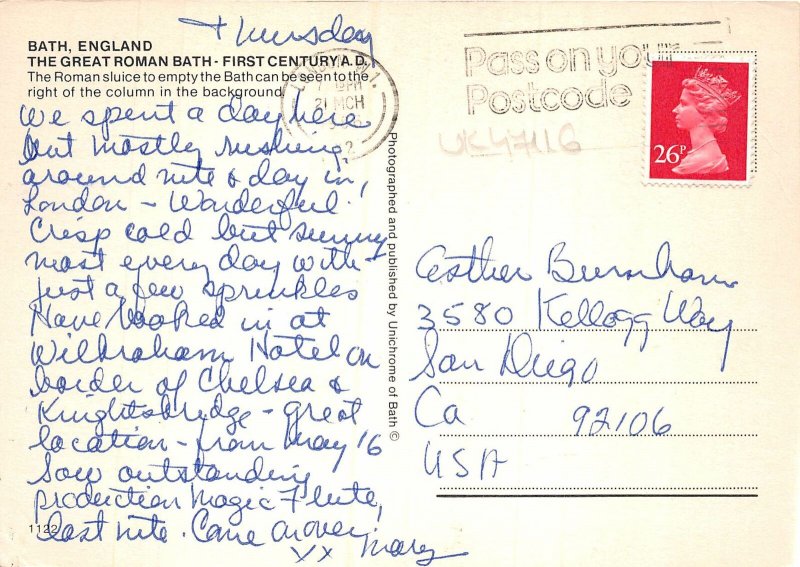 Thursday
BATH, ENGLAND
THE GREAT ROMAN BATH - FIRST CENTURY A.D.
The Roman sluice to empty the Bath can be seen to the
right of the column in the background
We spent a day here
but mostly rushing
around nite & day in
London - Wonderful!
Crisp cold but sunny
most every day with
just a few sprinkles
Have booked in at
Wilbraham Hotel on
border of Chelsea &
Knightsbridge - great
location - from May 16
Saw outstanding
production Magic Flute,
last nite. Come on over,
xx Mary
1122
Photographed and published by Unichrome of Bath ©
21 MCH
Pass on your
Postcode
UK47116
26P
Esther Burnham
3580 Kellogg Way
San Diego
Ca 92106
USA